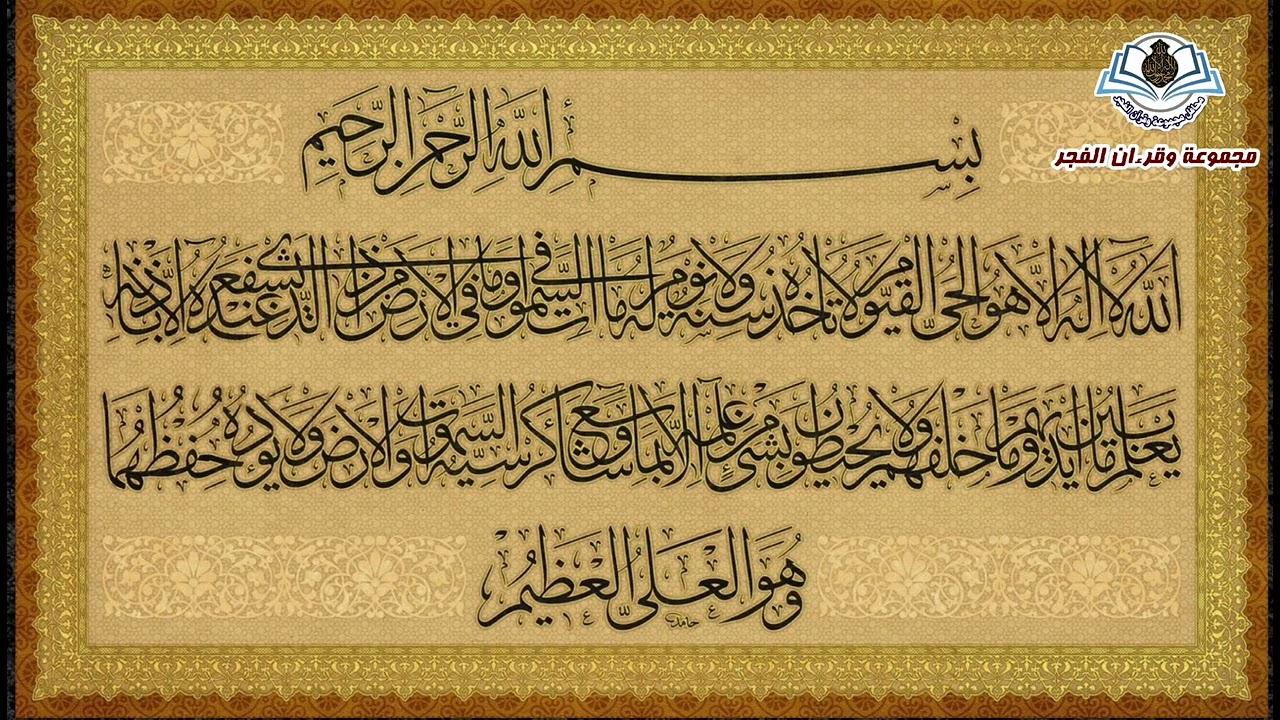 مجموعة وقرءان الفجر
بِسْمِ اللَّهِ الرَّحْمَنِ الرَّحِيمِ
اللَّهُ لَا إِلَهَ إِلَّا هُوَ الْحَيُّ الْقَيُّومُ لَا تَأْخُذُهُ سِنَةٌ وَلَا نَوْمٌ لَهُ مَا فِي السَّمَوَاتِ وَمَا فِي الْأَرْضِ مَنْ ذَا الَّذِي يَشْفَعُ عِنْدَهُ إِلَّا بِإِذْنِهِ
يَعْلَمُ مَا بَيْنَ أَيْدِيهِمْ وَمَا خَلْفَهُمْ وَلَا يُحِيطُونَ بِشَيْءٍ مِنْ عِلْمِهِ إِلَّا بِمَا شَاءَ وَسِعَ كُرْسِيُّهُ السَّمَوَاتِ وَالْأَرْضَ وَلَا يَئُودُهُ حِفْظُهُمَا
وَهُوَ الْعَلِيُّ الْعَظِيمُ
حامد